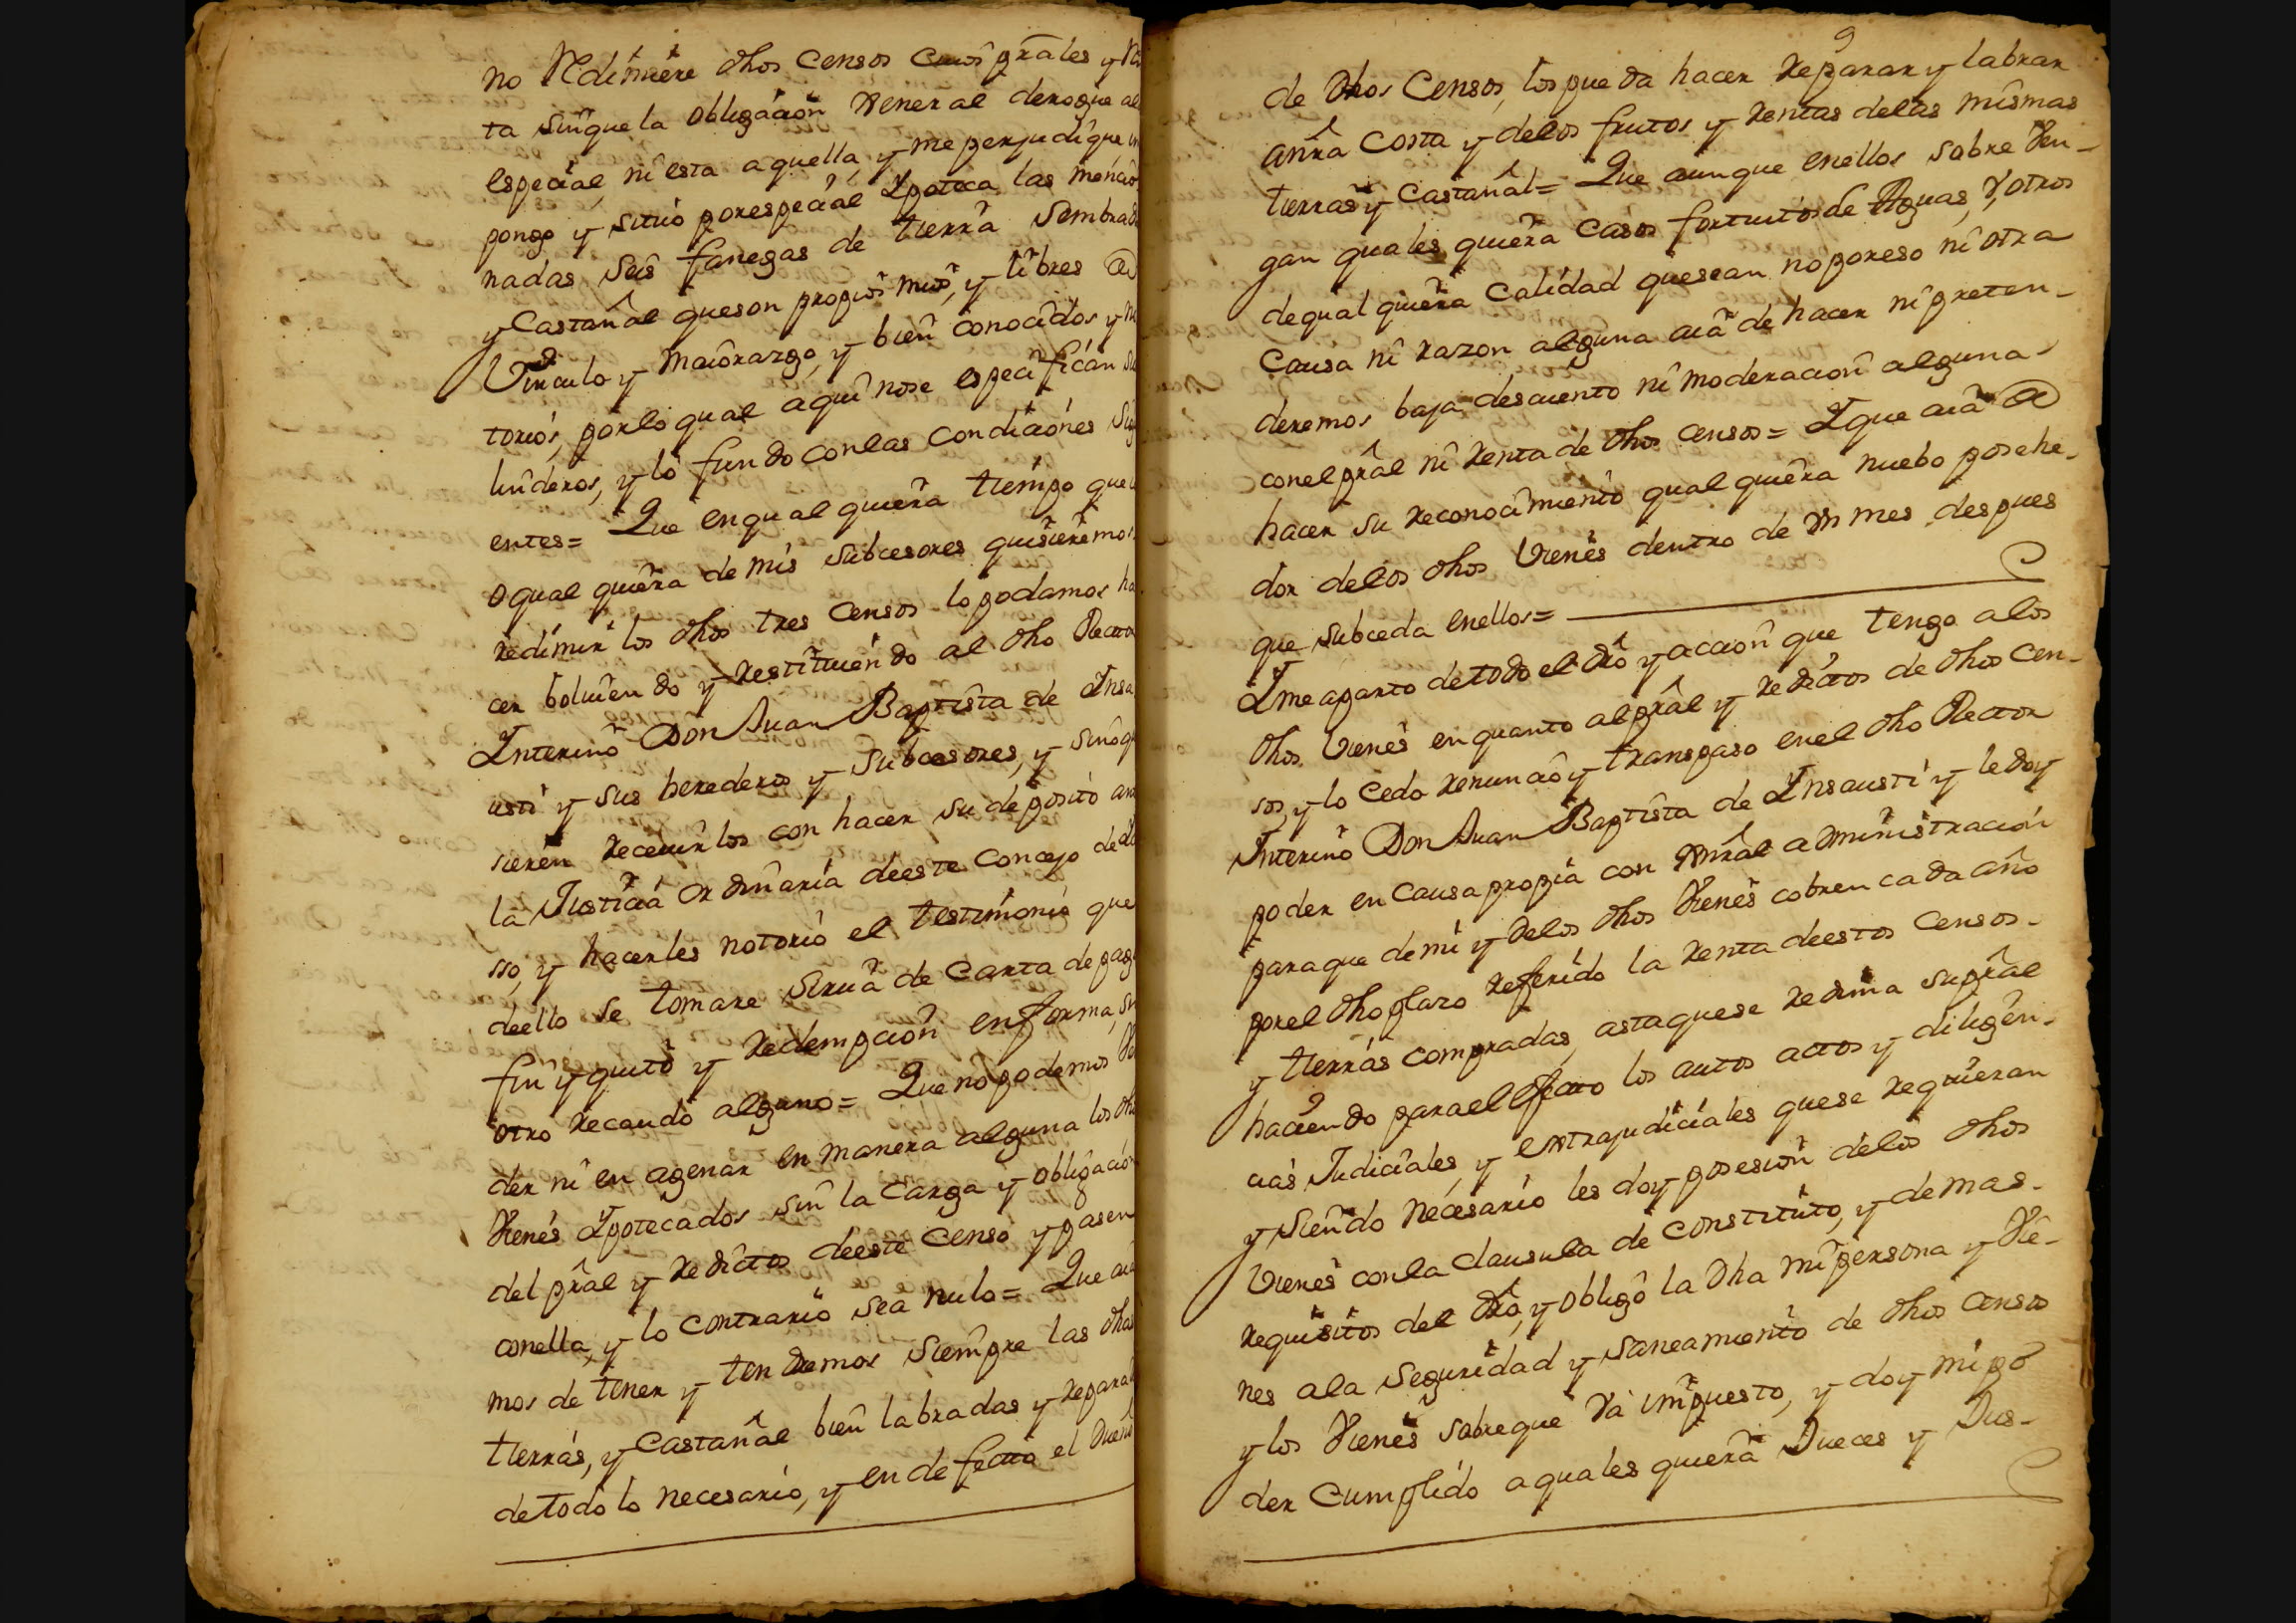 no Redimiere dhos censos cuios prales y
ta sin que la obligacion General derogue al
especial ni esta aquella, y me perjudique
pongo y situo por especial Ypoteca las mencio
nadas seis fanegas de tierra sembradu
y Castañal que son propios mios, y libres de
Vinculo y maiorazgo, y bien conocidos y no
torios, por lo qual aqui no se especifican sus
linderos, y lo fundo con las condiciones sigui
entes= Que en qual quiera tiempo que
o qual quiera de mis subcesores quisieremos
redimir los dhos tres censos lo podamos ha
cer bolviendo y restituiendo al dho Rector
Interino Don Juan Baptista de Insa
usti y sus herederos y subcesores, y sino qui
sieren recevirlos con hacer su deposito ante
la Justicia ordinaria de este concejo de
sso, y hacerles notorio el testimonio que
de ello se tomare sirua de carta de pago
fin y quito y redempcion en forma, sin
otro recaudo alguno= Que no podemos ven
der ni en agenar en manera alguna los dhos
Vienes Ypotecados sin la carga y obligacion
del pral y reditos de este censo y pasen
con ella, y lo contrario sea nulo= Que aue
mos de tener y tendremos siempre las dhas
tierras, y Castañal bien labradas y reparadas
de todo lo necesario, y en defecto el Dueño
9
de dhos Censos, los pueda hacer reparar y labrar
a nra costa y de los frutos y rentas de las mismas
tierras y Castañal= Que aunque en ellos sobre Ven-
gan quales quiera casos fortuitos de Aguas, Y otros
de qual quiera calidad que sean no por eso ni otra
causa ni razon alguna aia de hacer ni preten-
deremos baja descuento ni moderacion alguna
con el pral ni renta de dhos censos= Y que aia de
hacer su reconocimiento qual quiera nuebo posehe-
dor de los dhos Vienes dentro de Un mes despues
que subceda en ellos=
Y me aparto de todo el dro y accion que tengo a los
dhos Vienes en quanto al pral y reditos de dhos cen-
sos, y lo cedo renuncio y transpaso en el dho Rector
Interino Don Juan Baptista de Insausti y le doy
poder en causa propia con Gnral administracion
para que de mi y de los dhos Vienes cobren cada año
por el dho plazo referido la renta de estos censos-
y tierras compradas, asta que se redima su pral
haciendo para el efecto los autos actos y diligen-
cias Judiciales, y extrajudiciales que se requieran
y siendo necesario les doy posesion de los dhos
Vienes con la clausula de constituto, y demas-
requisitos del dro, y obligo la dha mi persona y Vie-
nes a la seguridad y saneamiento de dhos censos
y los Vienes sobre que va impuesto, y doy mi po
der cumplido a quales quiera Jueces y Jus-